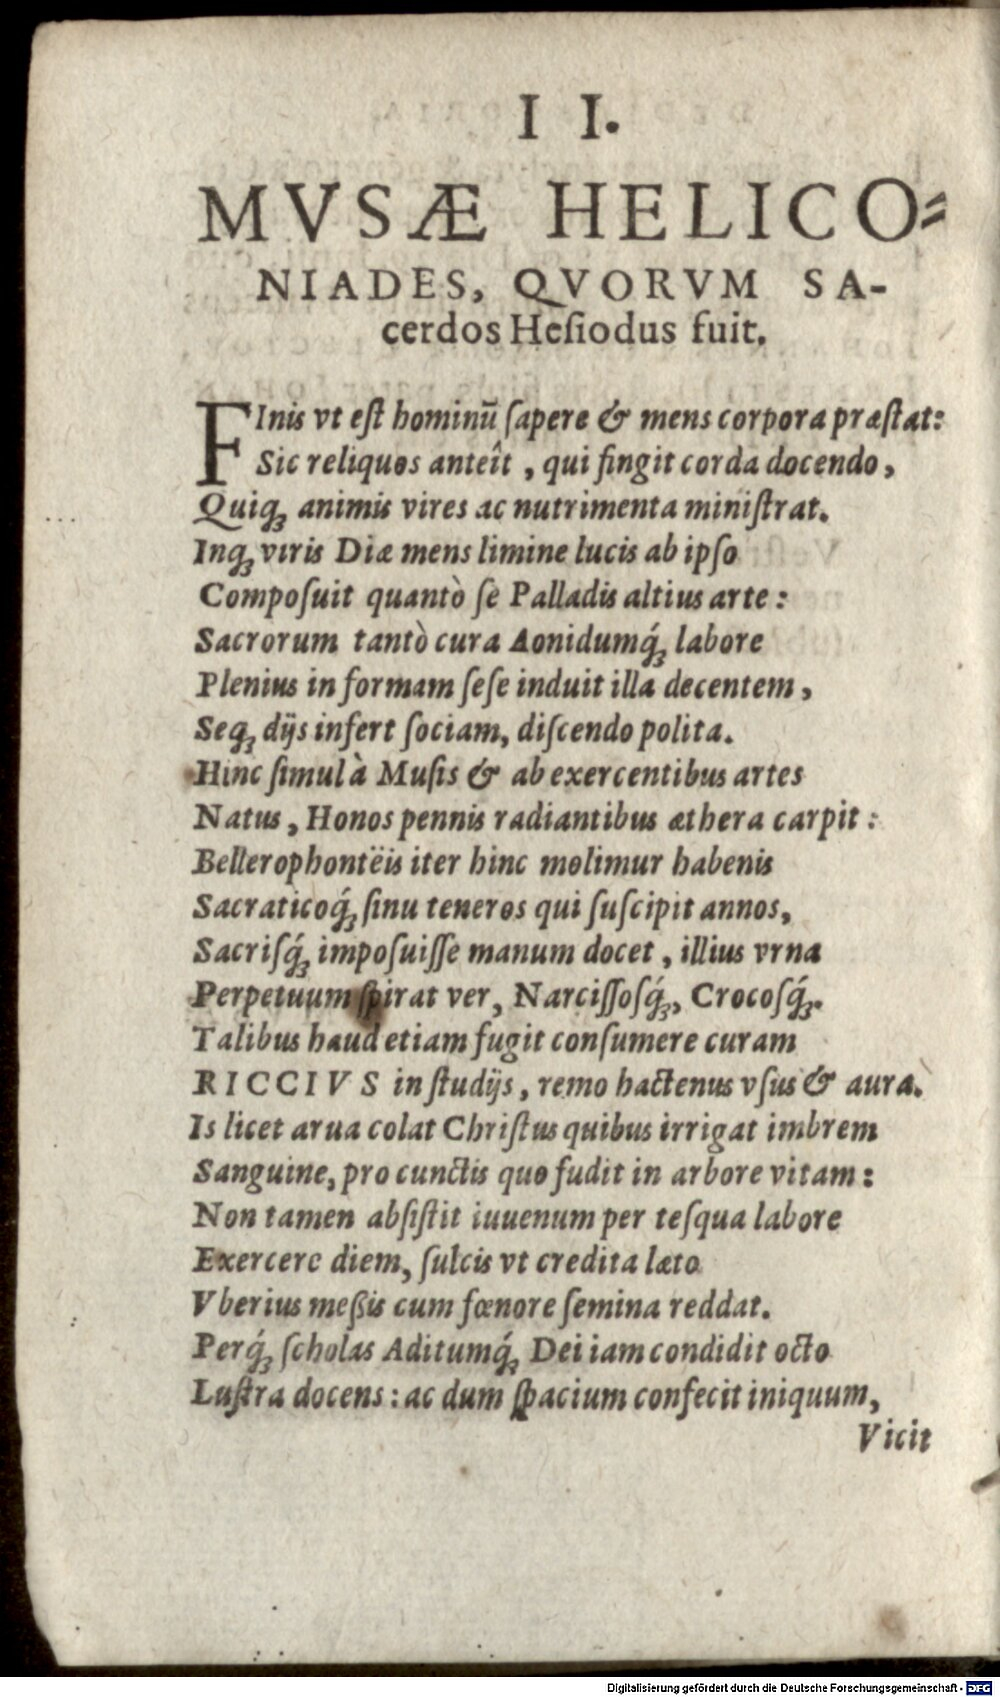 I I.
MVSÆ HELICO⸗
NIADES, QVORVM SA-
cerdos Heſiodus fuit.
FInis vt eſt hominū ſapere & mens corpora præſtat:
Sic reliquos anteît , qui fingit corda docendo ,
Quiqꝫ animis vires ac nutrimenta miniſtrat.
Inqꝫ viris Diæ mens limine lucis ab ipſo
Compoſuit quantò ſe Palladis altius arte :
Sacrorum tantò cura Aonidumq́ꝫ labore
Plenius in formam ſeſe induit illa decentem ,
Seqꝫ dijs infert ſociam, diſcendo polita.
Hinc ſimul à Muſis & ab exercentibus artes
Natus , Honos pennis radiantibus æthera carpit :
Bellerophontëis iter hinc molimur habenis
Sacraticoq́ꝫ ſinu teneros qui ſuſcipit annos,
Sacriſq́ꝫ impoſuiſſe manum docet , illius vrna
Perpetuum ſpirat ver, Narciſſoſq́ꝫ, Crocoſq́ꝫ.
Talibus haud etiam fugit conſumere curam
RICCIVS in ſtudijs , remo hactenus vſus & aura.
Is licet arua colat Chriſtus quibus irrigat imbrem
Sanguine, pro cunctis quo fudit in arbore vitam :
Non tamen abſiſtit iuuenum per teſqua labore
Exercere diem, ſulcis vt credita læto
Vberius meßis cum fœnore ſemina reddat.
Perq́ꝫ ſcholas Aditumq́ꝫ Dei iam condidit octo
Luſtra docens : ac dum ſpacium confecit iniquum,
Vicit
Digitalisierung gefördert durch die Deutsche Forschungsgemeinschaft - DFG